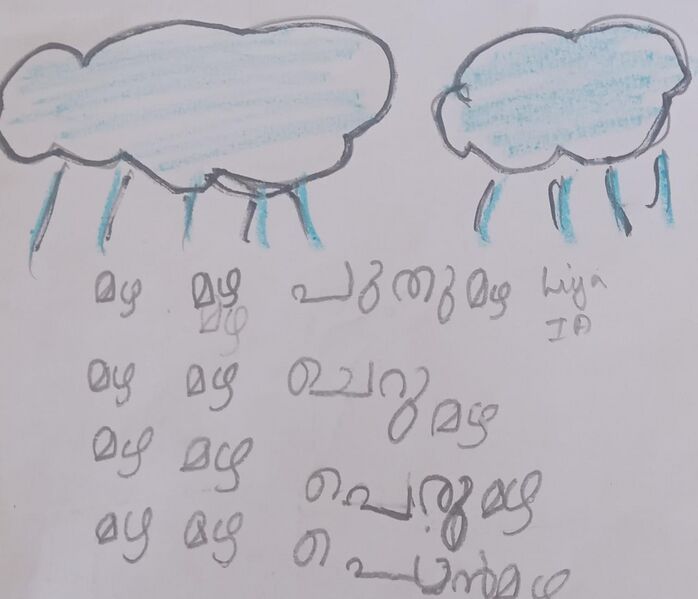 മഴ മഴ പുതുമഴ Liya
I A
മഴ മഴ ചെറുമഴ
മഴ മഴ പെരുമഴ
മഴ മഴ പൊൻമഴ